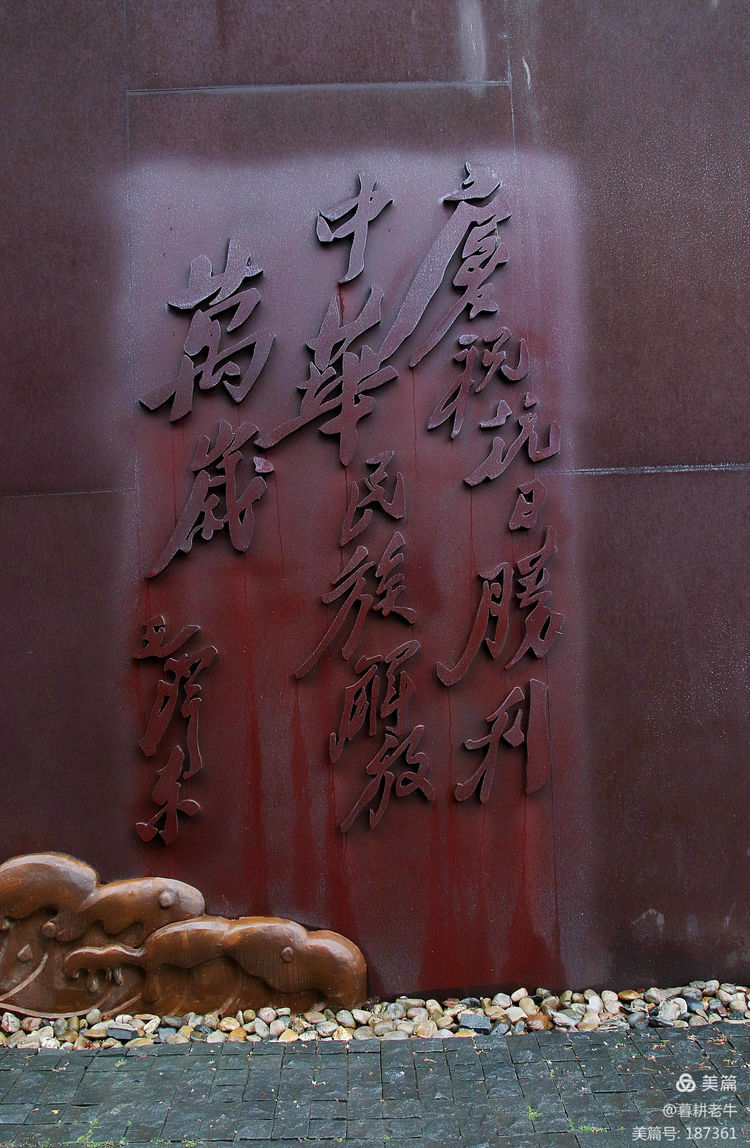 慶祝抗日勝利
中華民族解放
萬歲
毛澤东
美篇
@暮耕老牛
美篇号: 187361